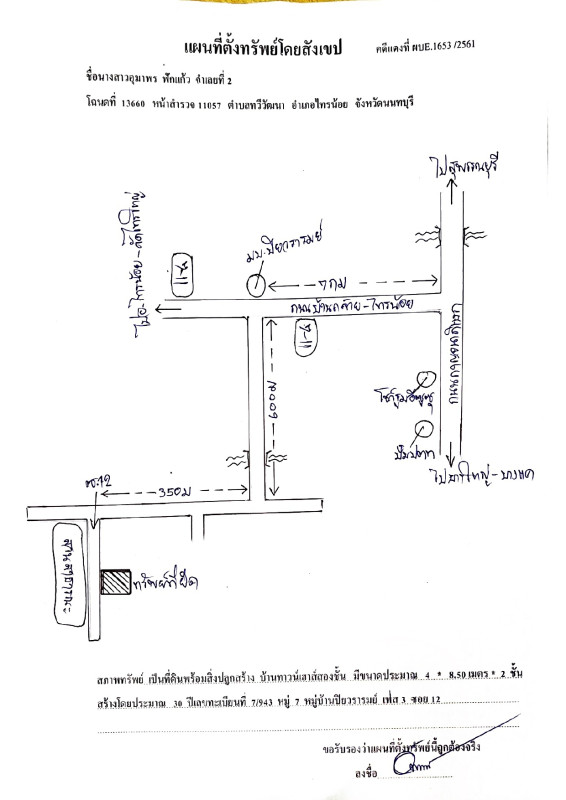 แผนที่ตั้งทรัพย์โดยสังเขป
คดีแดงที่ ผบE.1653 /2561
ชื่อนางสาวอุมาพร ฟักแก้ว จำเลยที่ 2
โฉนดที่ 13660 หน้าสำรวจ 11057 ตำบลทวีวัฒนา อำเภอไทรน้อย จังหวัดนนทบุรี
ไปสุพรรณบุรี
ไปอ.ไทรน้อย-วัดไทรใหญ่
มบ.ปิยวรารมย์
7-11
7 กม
ถนนบ้านกล้วย-ไทรน้อย
7-11
600 ม
โชว์รูมอีซูซุ
ปั๊มปตท
ไปบางใหญ่-บางแค
ซ.12
350 ม
สวนสาธารณะ
ทรัพย์ที่ยึด
สภาพทรัพย์ เป็นที่ดินพร้อมสิ่งปลูกสร้าง บ้านทาวน์เฮาส์สองชั้น มีขนาดประมาณ 4 * 8.50 เมตร * 2 ชั้น
สร้างโดยประมาณ 30 ปีเลขทะเบียนที่ 7/943 หมู่ 7 หมู่บ้านปิยวรารมย์ เฟส 3 ซอย 12
ขอรับรองว่าแผนที่ตั้งทรัพย์นี้ถูกต้องจริง
ลงชื่อ